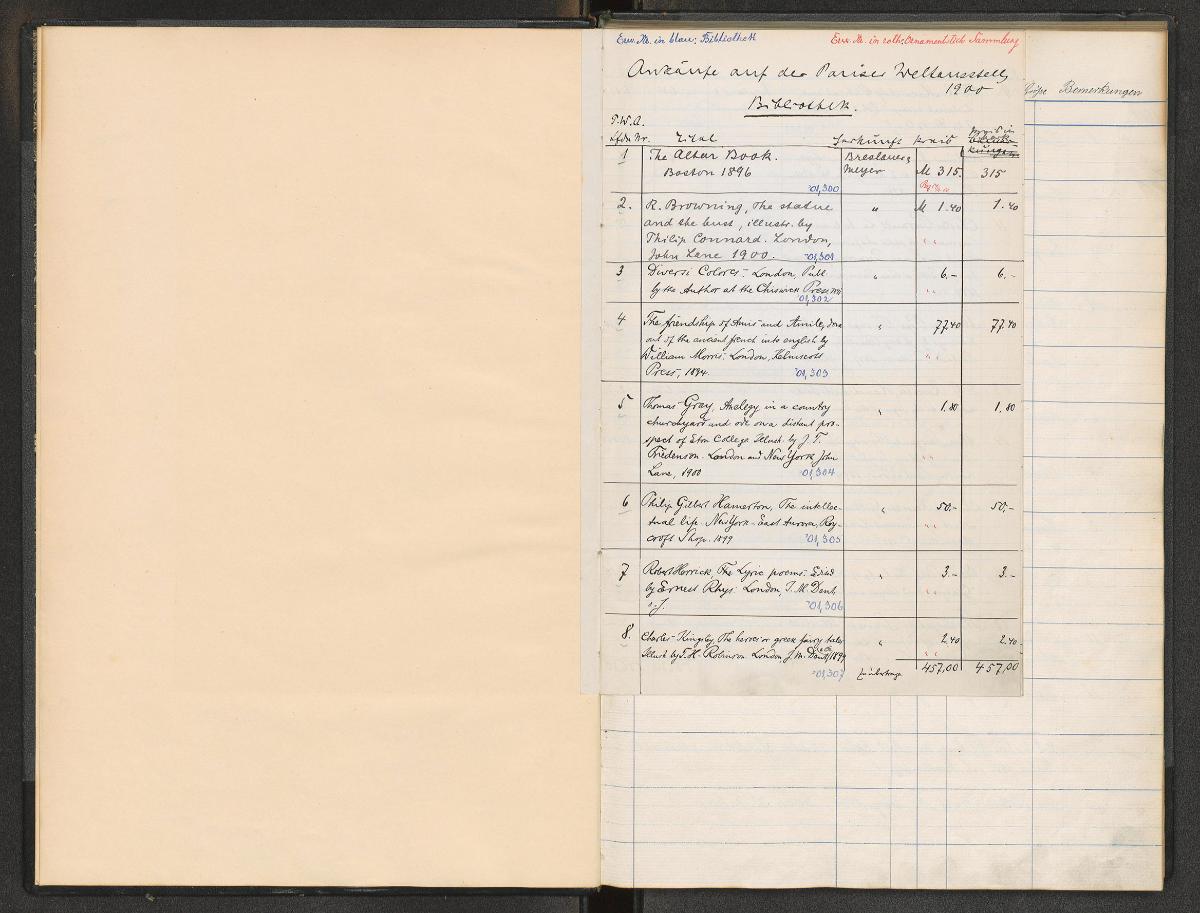 Erw. Nr. in blau: Bibliothek
Erw. Nr. in roth: Ornamentstich Sammlung
Ankäufe auf der Pariser Weltausstellg
1900
Bibliothek.
P.W.A.
Lfde Nr. Titel Herkunft Preis Preis in
Bemerkungen
1 The Altar Book. Breslauer &
Boston 1896 Meyer M 315. 315
'01,300
2. R. Browning, The statue " M 1.40 1.40
and the bust, illustr. by
Philip Connard. London, " "
John Lane 1900. '01,301
3 Diversi Colores - London, Publ. " 6.- 6.-
by the Author at the Chiswick Press " "
'01,302
4 The friendship of Amis and Amile, done " 77.40 77.40
out of the ancient french into english by
William Morris. London, Kelmscott " "
Press, 1894. '01,303
5 Thomas Gray, An elegy in a country " 1.80 1.80
churchyard and ode on a distant pro-
spect of Eton College. Illustr. by J. T.
Friedenson. London and New York John " "
Lane, 1900 '01,304
6 Philip Gilbert Hamerton, The intellec- " 50.- 50.-
tual life. New York - East Aurora, Roy- " "
croft Shop. 1899 '01,305
7 Robert Herrick, The Lyric poems. Edited " 3.- 3.-
by Ernest Rhys. London, J. M. Dent " "
s.j. '01,306
8. Charles Kingsley, The heroes or greek fairy tales " 2.40 2.40
Illustr. by T. H. Robinson. London J. M. Dent, 1899 " "
'01,307 zu übertrage 457,00 457,00
Bemerkungen